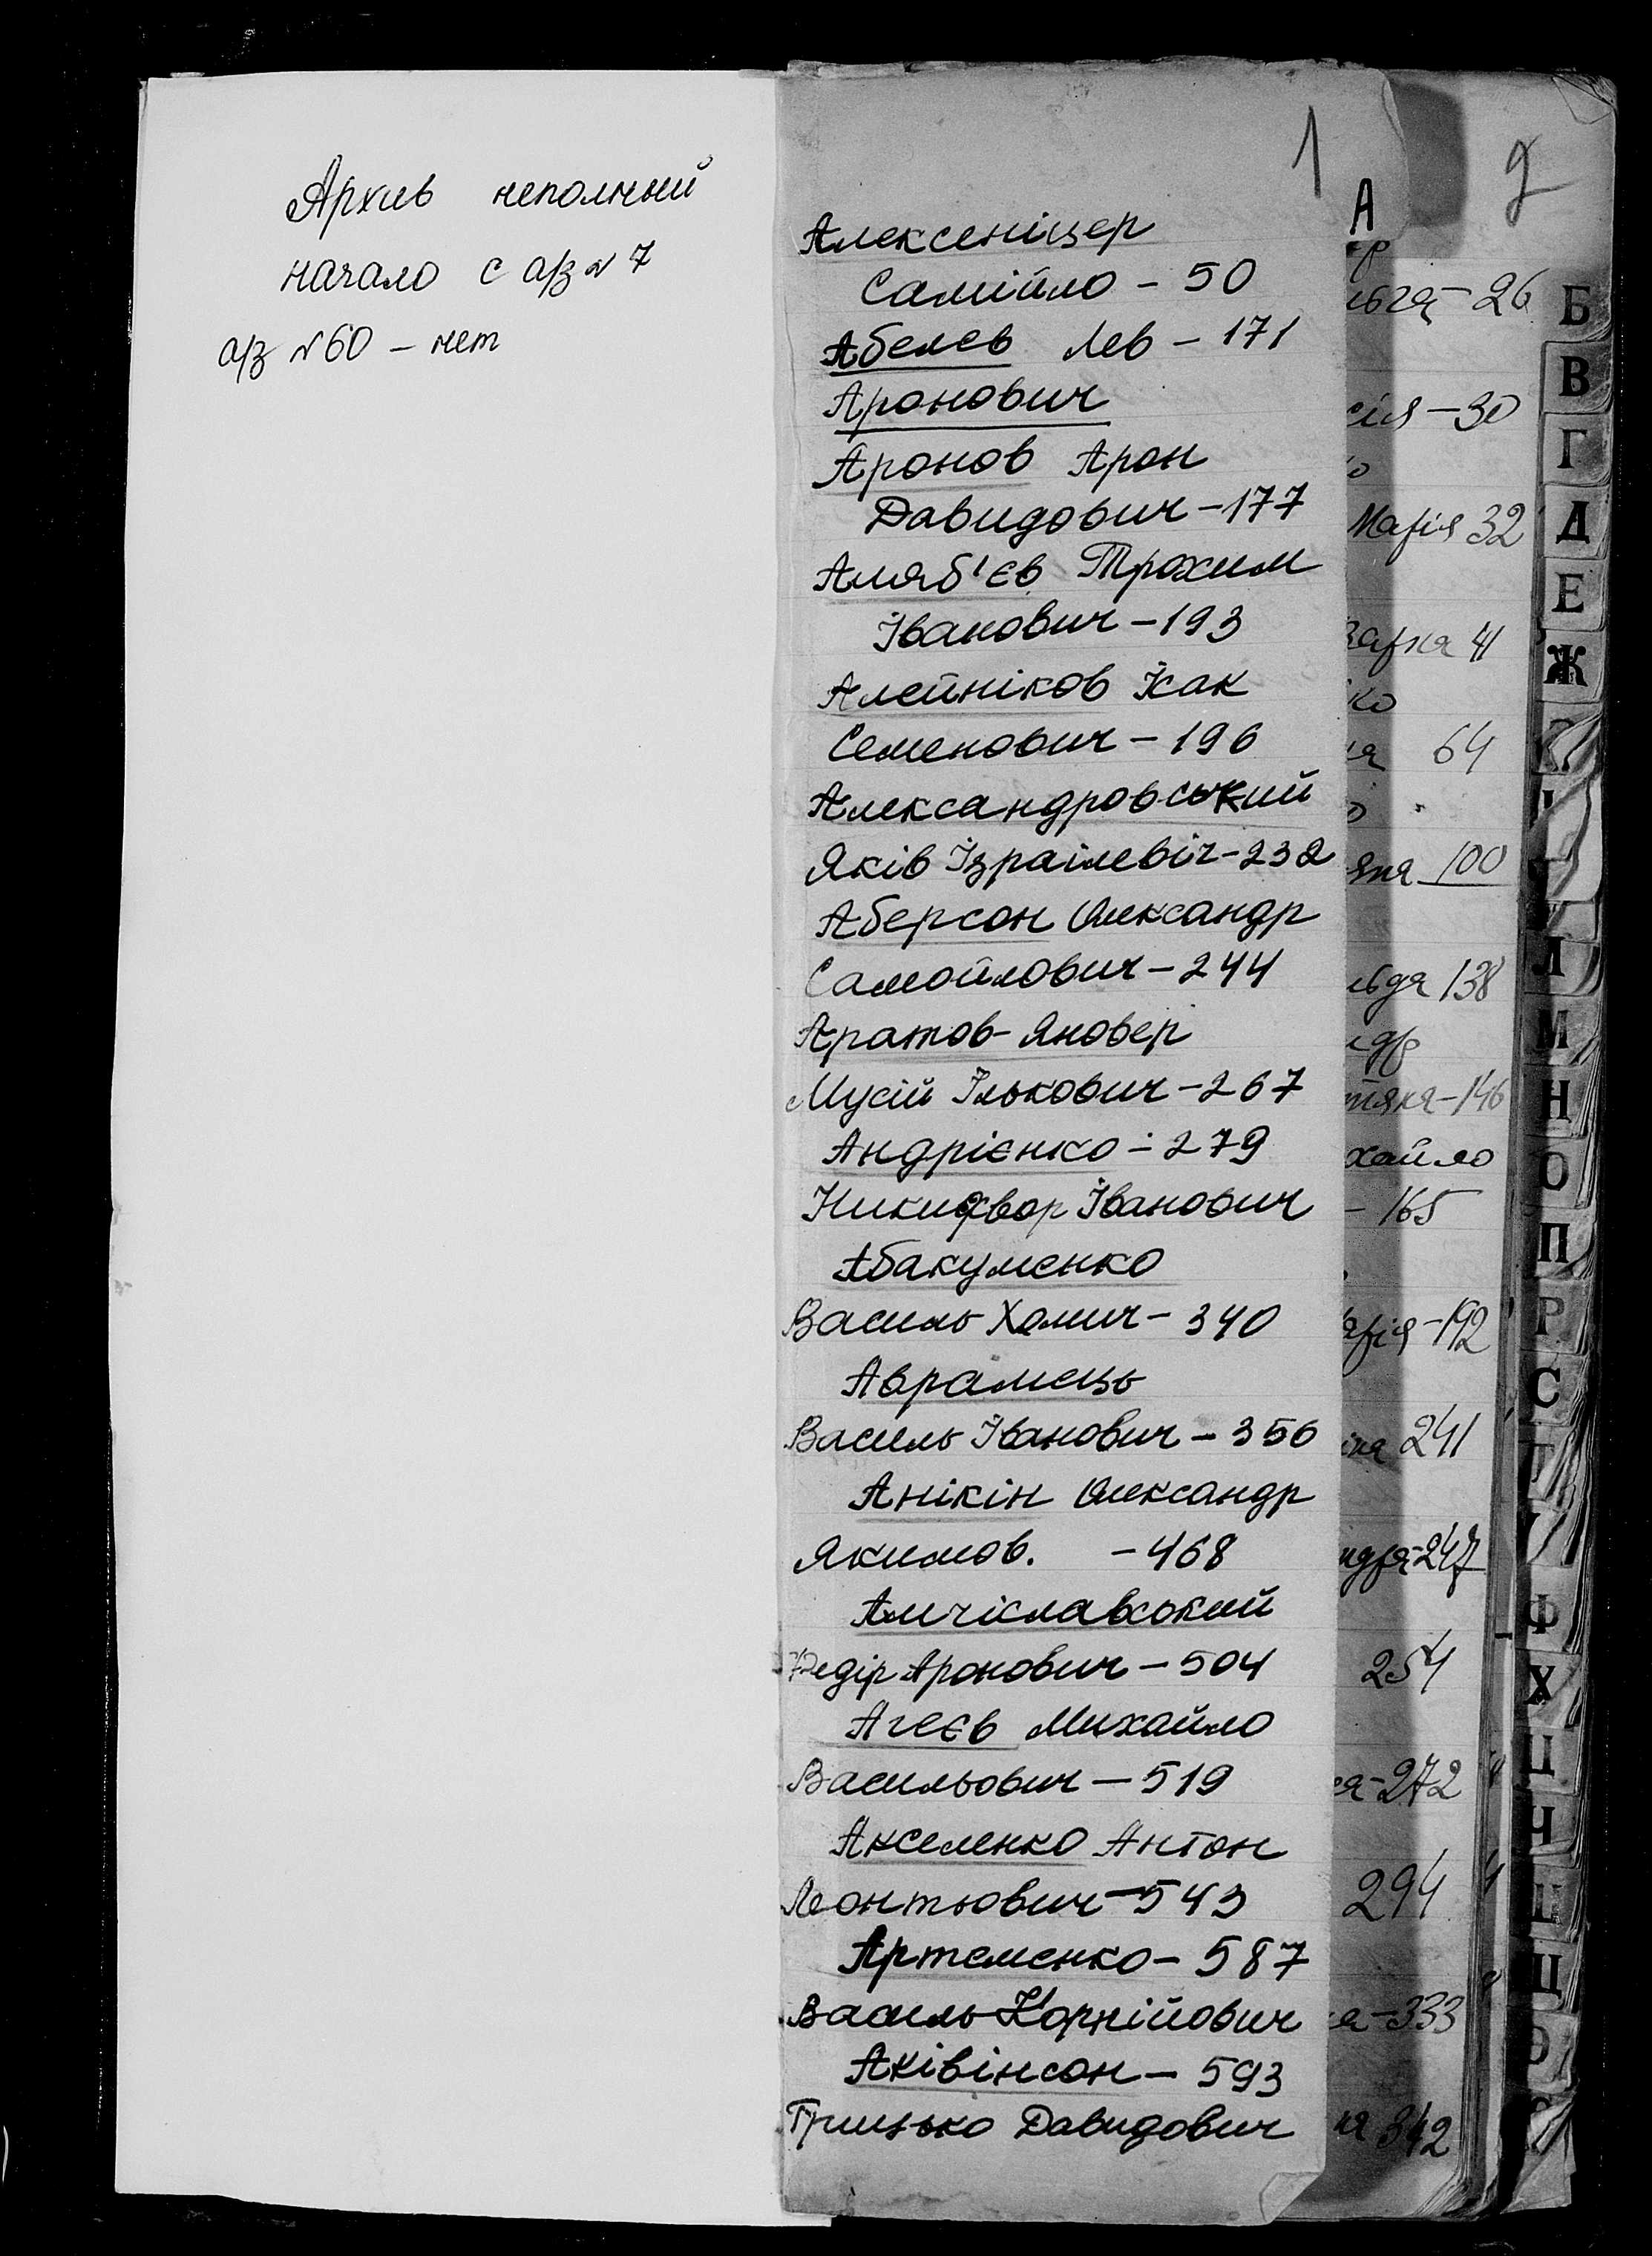 Архив неполный
начало с а/з № 7
а/з № 60 – нет
1
А
Алексеніцер
Самійло – 50
Абелев Лев – 171
Аронович
Аронов Арон
Давидович – 177
Аляб'єв Трохим
Іванович – 193
Алейніков Ісак
Семенович – 196
Александровський
Яків Ізраілевіч – 232
Аберсон Олександр
Самойлович – 244
Аратов-Яновер
Мусій Ількович – 267
Андрієнко – 279
Никифор Іванович
Абакуменко
Василь Хомич – 340
Аврамець
Василь Іванович – 356
Анікін Олександр
Якимов. – 468
Амчіславський
Федір Аронович – 504
Агеєв Михайло
Васильович – 519
Акселенко Антон
Леонтьович – 543
Артеменко – 587
Василь Корнійович
Аківінсон – 593
Грицько Давидович
2
ьга – 26
сія – 30
Марія 32
варка 41
ко
на 64
яна 100
ьда 138
др
тяна – 146
хайло
– 165
арія – 192
іна 241
ндра – 247
254
ея – 272
294
а – 333
на 342
Б
В
Г
Д
Е
Ж
Л
М
Н
О
П
Р
С
Т
Ф
Х
Ц
Ч
Щ
Э